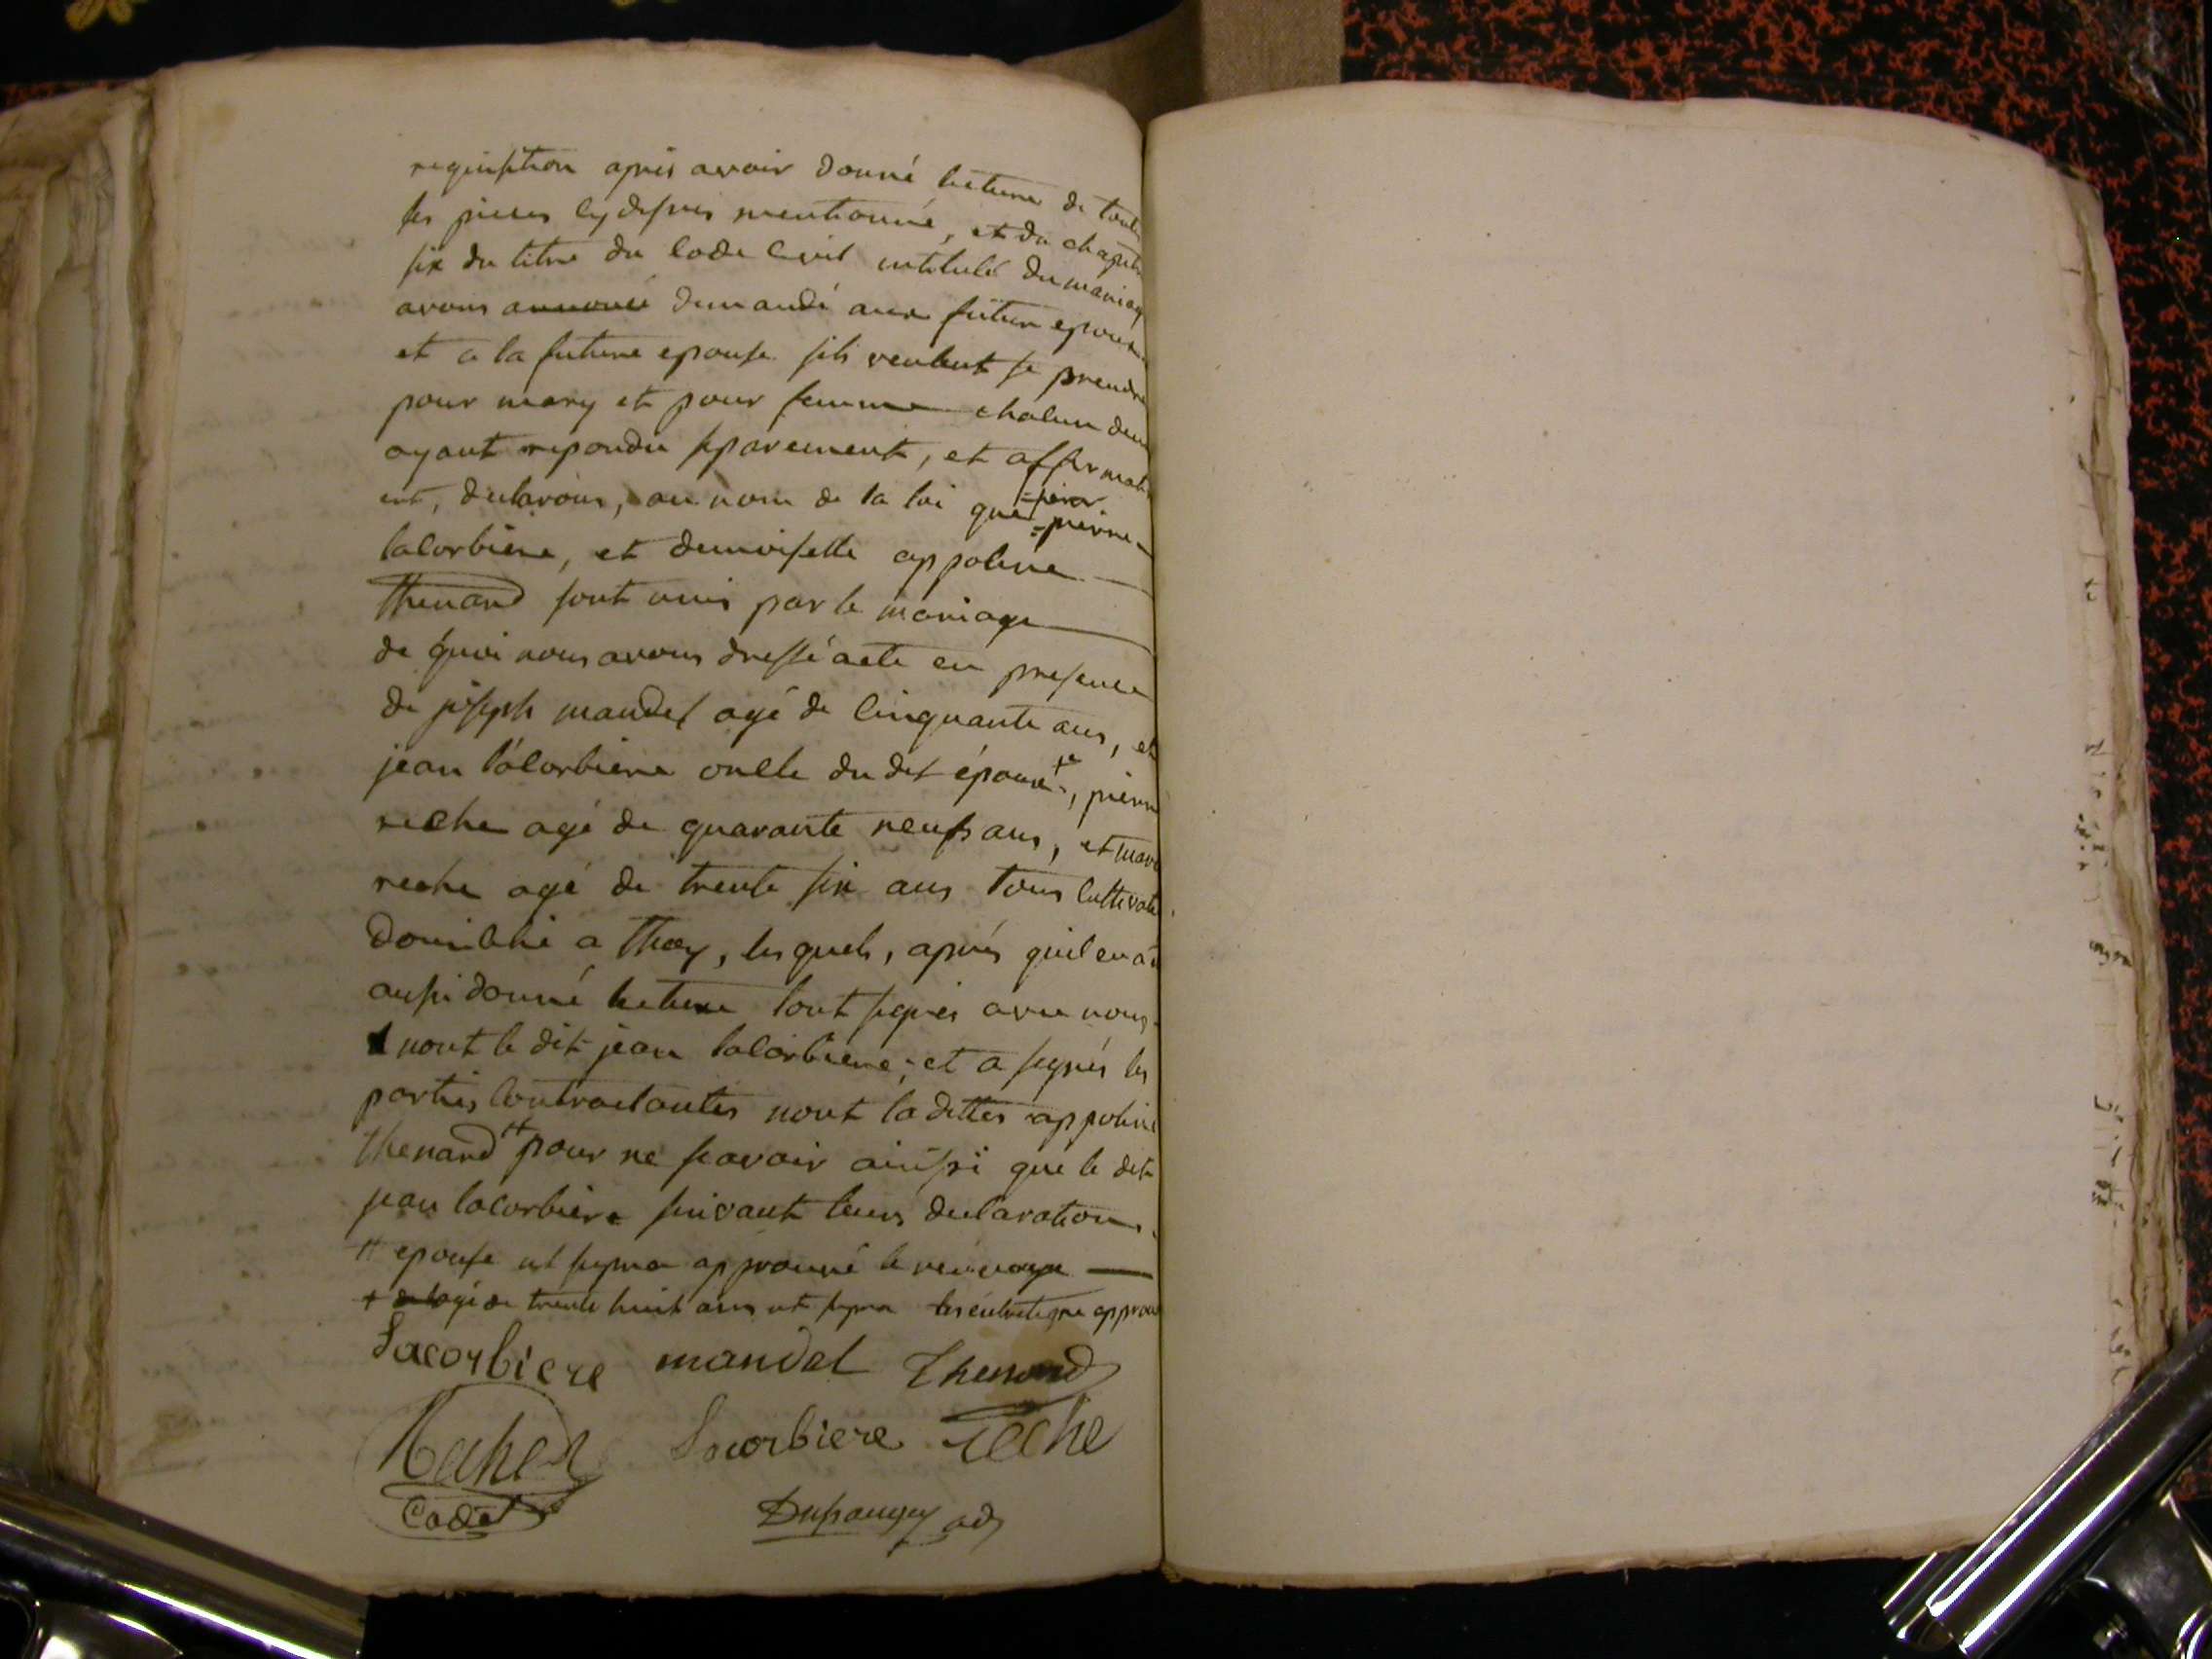 requisition après avoir donné lecture de toutes
les pieces cy dessus mentionné, et du chapitre
six du titre du Code Civil intitulé du mariage
avons annoncé demandé aux futur epoux
et a la future epouse sils veulent se prendre
pour mary et pour femme chalun deux
ayant repondu separement, et affirmativem
ent, declarons, au nom de la loi que pierre
lacorbiere, et demoiselle appoline
Thenard sont unis par le mariage
de quoi nous avons dressé acte en presence
de joseph mandet agé de Cinquante ans, et
jean lacorbiere oncle du dit époux +, pierre
reche agé de quarante neuf ans, et marc
reche agé de trente six ans tous Cultivate
domicilié a Thoey, lesquels, après quil en a
aussi donné lecture l'ont signés avec nous
nont le dit jean lacorbiere; et a signés les
parties Contractantes nont la dittes appoline
thenard # pour ne scavoir ainssi que le dit
jean lacorbiere suivant leurs declarations
# epouse ut supra approuvé le renvoye
+ agé de trente huit ans ut supra approuvé
Lacorbiere mandet Thenard
Lacorbiere reche
Cadet